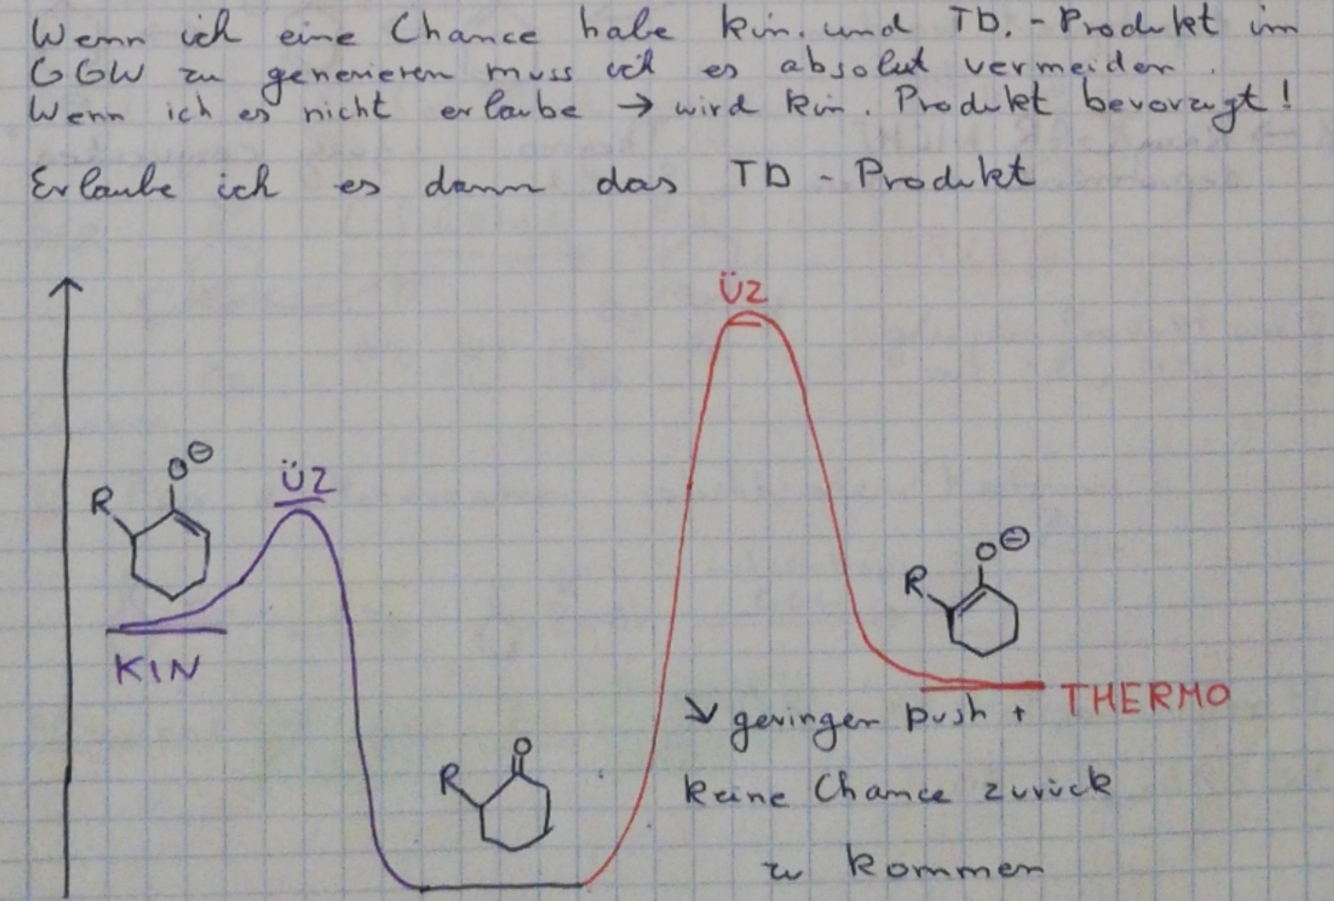 Wenn ich eine Chance habe kin. und TD.-Produkt im
GGW zu generieren muss ich es absolut vermeiden.
Wenn ich es nicht erlaube → wird kin. Produkt bevorzugt!
Erlaube ich es dann das TD-Produkt
ÜZ
O⊖
ÜZ
R
O⊖
R
KIN
THERMO
↘ geringen push +
O
R
keine Chance zurück
zu kommen